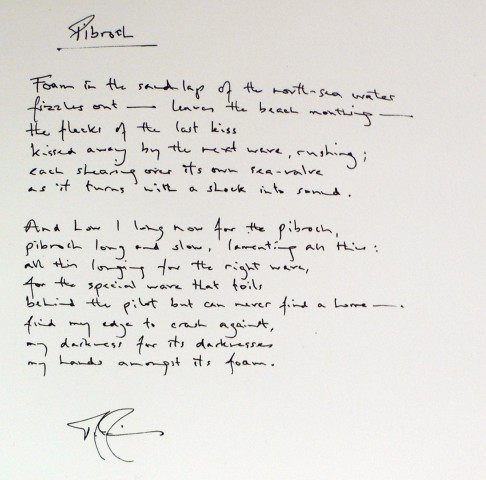 Pibroch
Foam in the sandlap of the north-sea water
fizzles out — leaves the beach mouthing —
the flecks of the last kiss
kissed away by the next wave, rushing;
each shearing over its own sea-valve
as it turns with a shock into sound.
And how I long now for the pibroch,
pibroch long and slow, lamenting all this:
all this longing for the right wave,
for the special wave that toils
behind the pilot but can never find a home —.
find my edge to crash against,
my darkness for its darknesses
my hands amongst its foam.